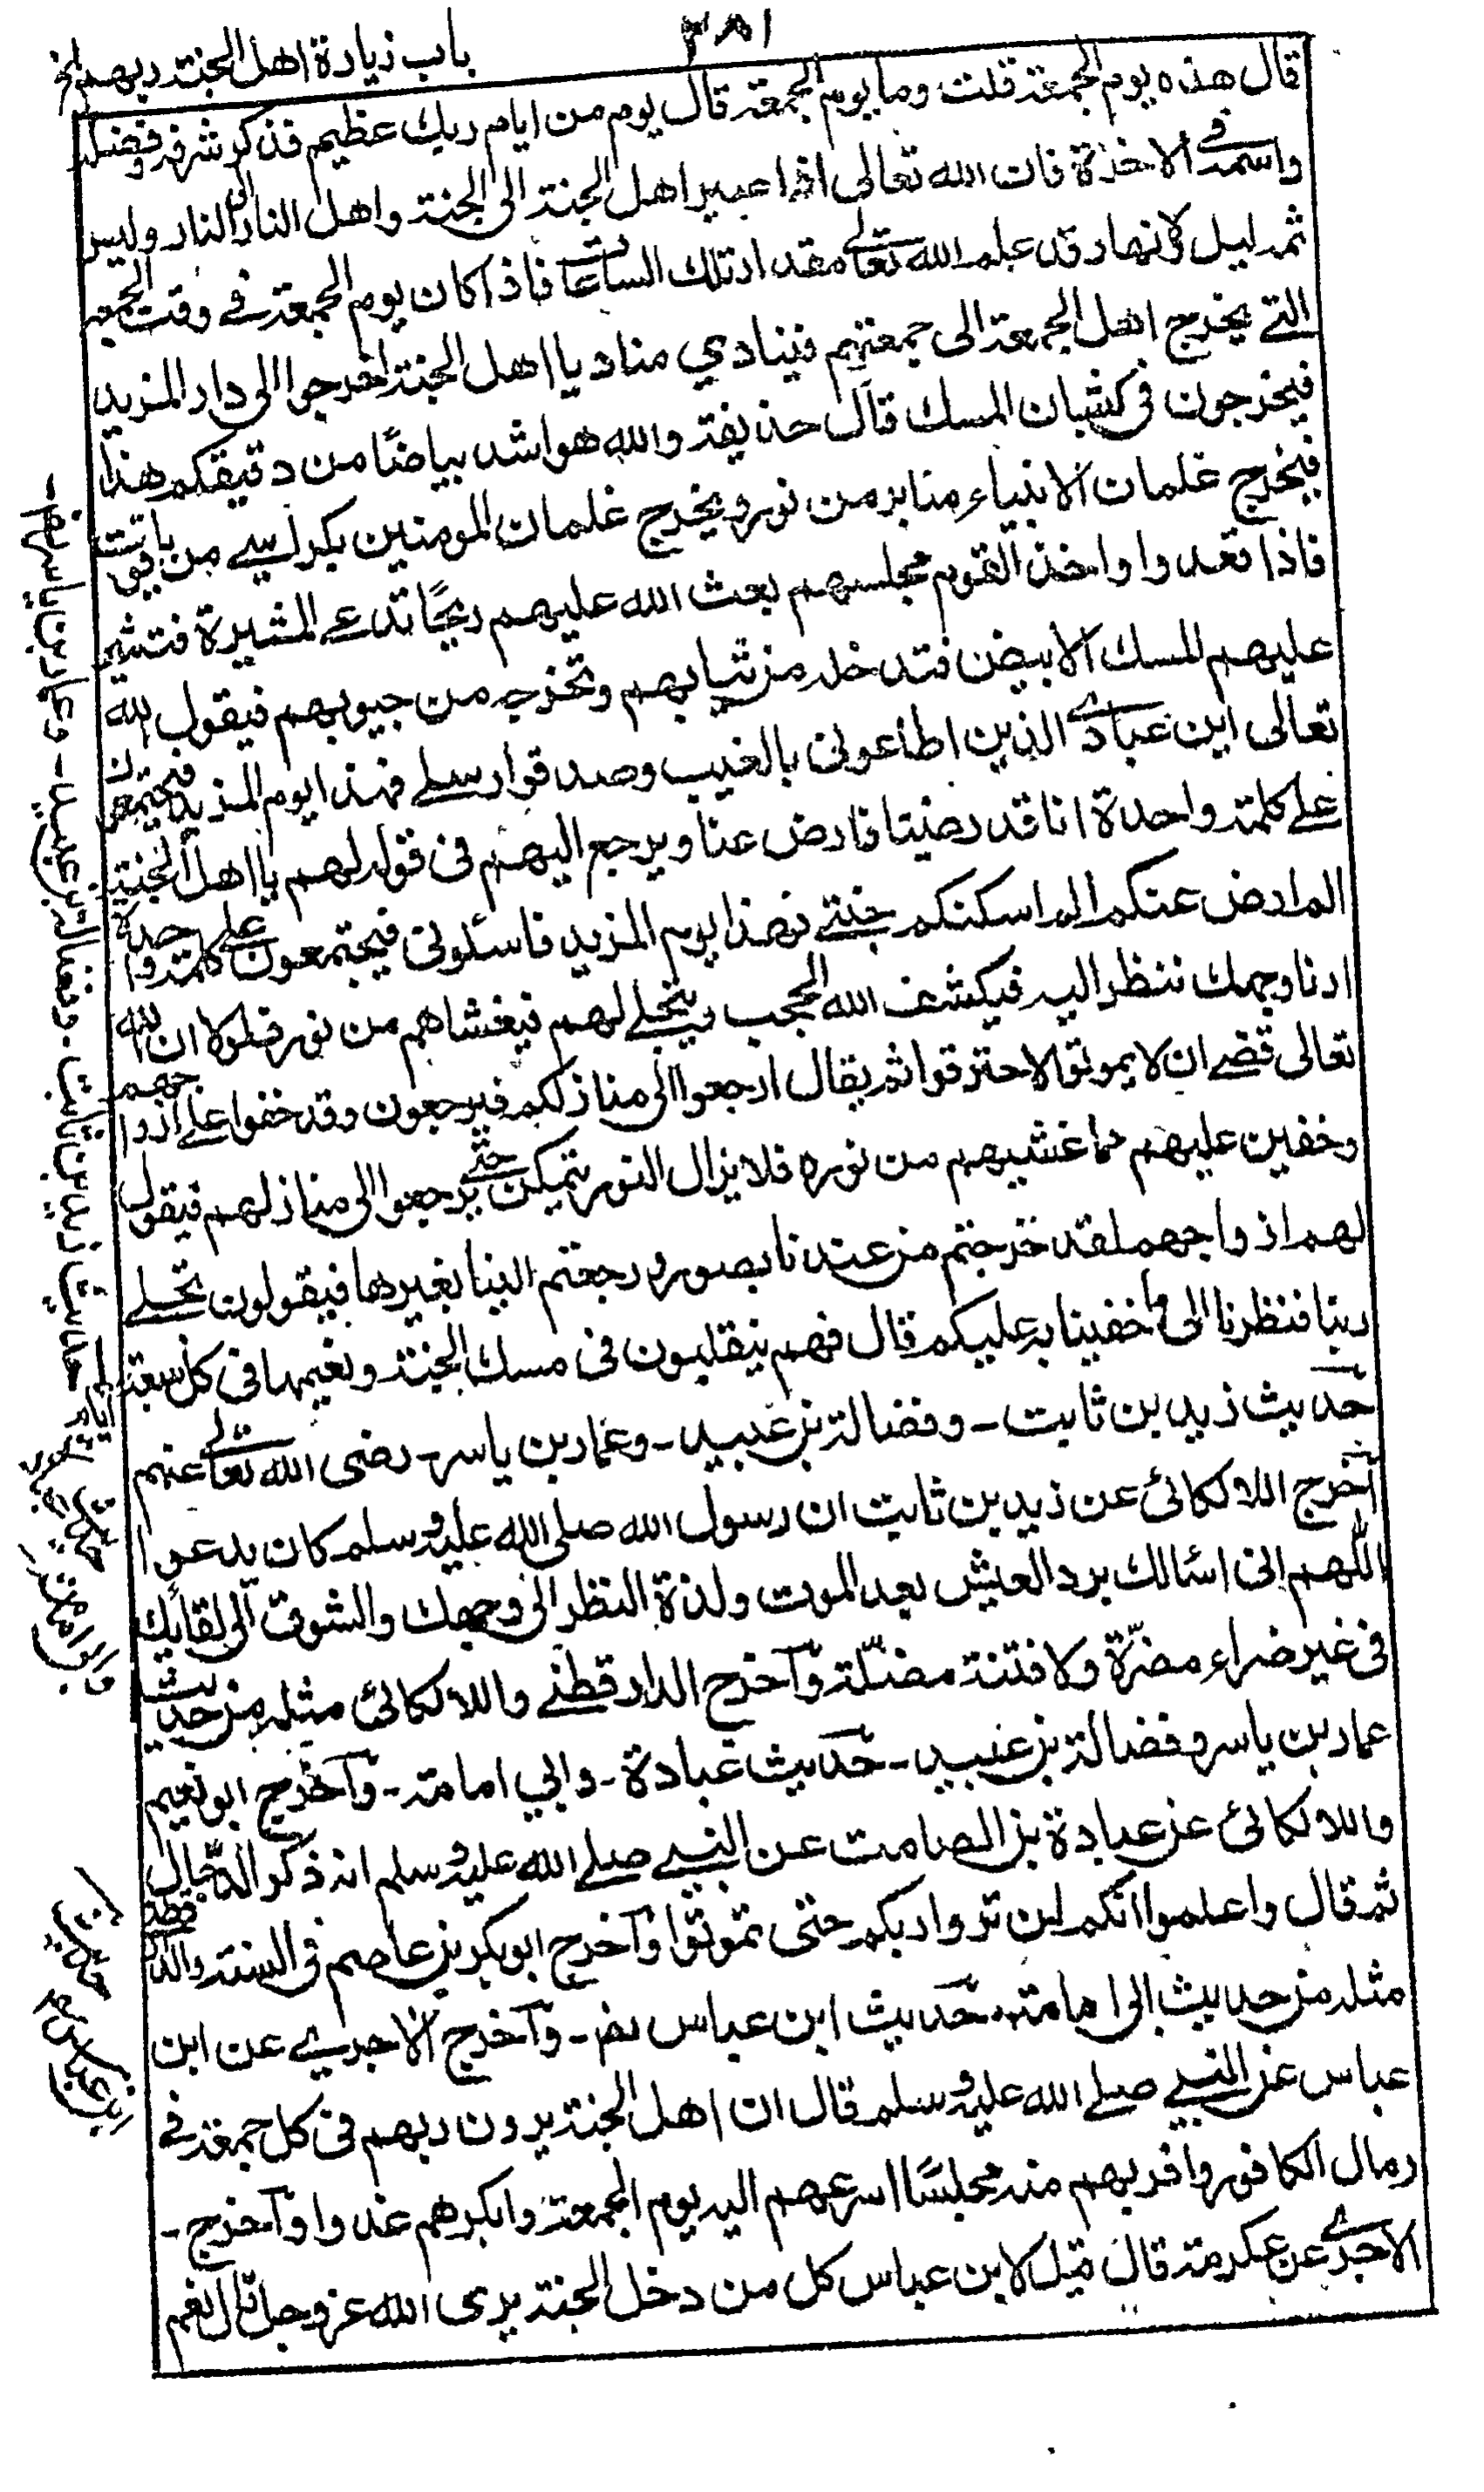 ٣٨١
باب زيارة اهل الجنة ربهم الخ
قال هذه يوم الجمعة قلت وما يوم الجمعة قال يوم من ايام ربك عظيم فذكر شرفه وفضله
واسمه في الاخرة فان الله تعالى اذا صير اهل الجنة الى الجنة واهل النار الى النار وليس
ثمه ليل ولا نهار قد علم الله تعالى مقدار تلك الساعات فاذا كان يوم الجمعة في وقت الجمعة
التي يخرج اهل الجمعة الى جمعتهم فينادي مناد يا اهل الجنة اخرجوا الى دار المزيد
فيخرجون في كثبان المسك قال حذيفة والله هو اشد بياضًا من دقيقكم هذا
فيخرج غلمان الانبياء منابر من نور ويخرج غلمان المومنين بكراسي من ياقوت
فاذا قعدوا واخذ القوم مجلسهم بعث الله عليهم ريحًا تدعى المثيرة فتثير
عليهم المسك الابيض فتدخله من ثيابهم وتخرجه من جيوبهم فيقول الله
تعالى اين عبادي الذين اطاعوني بالغيب وصدقوا رسلي فهذا يوم المزيد فيجتمعون
على كلمة واحدة انا قد رضينا فارض عنا ويرجع اليهم في قوله لهم يا اهل الجنة
لم ارض عنكم لم اسكنكم جنتي فهذا يوم المزيد فاسئلوني فيجتمعون على كلمة واحدة
ارنا وجهك ننظر اليه فيكشف الله الحجب ويتجلى لهم فيغشاهم من نوره فلولا ان الله
تعالى قضى ان لا يموتوا لاحترقوا ثم يقال ارجعوا الى منازلكم فيرجعون وقد خفوا على ازواجهم
وخفين عليهم مما غشيهم من نوره فلا يزال النور يتمكن حتى يرجعوا الى منازلهم فيقول
لهم ازواجهم لقد خرجتم من عندنا بصور ورجعتم الينا بغيرها فيقولون تجلى
ربنا فنظرنا الى ما خفينا به عليكم قال فهم يتقلبون في مسك الجنة ونعيمها في كل سبعة ايام
حديث زيد بن ثابت - وفضالة بن عبيد - وعمار بن ياسر - رضى الله تعالى عنهم
اخرج اللالكائي عن زيد بن ثابت ان رسول الله صلى الله عليه وسلم كان يدعوا
اللهم اني اسالك برد العيش بعد الموت ولذة النظر الى وجهك والشوق الى لقائك
في غير ضراء مضرّة ولا فتنة مضلّة وآخرج الدارقطني واللالكائي مثله من حديث
عمار بن ياسر وفضالة بن عبيد - حديث عبادة - وابي امامة - وآخرج ابو نعيم
واللالكائي عن عبادة بن الصامت عن النبي صلى الله عليه وسلم انه ذكر الدجّال
ثم قال واعلموا انكم لن تروا ربكم حتى تموتوا وآخرج ابو بكر بن عاصم في السنة والدارقطني
مثله من حديث ابى امامة - حديث ابن عباس رض - وآخرج الاجري عن ابن
عباس عن النبي صلى الله عليه وسلم قال ان اهل الجنة يرون ربهم في كل جمعة في
رمال الكافور واقربهم منه مجلسًا اسرعهم اليه يوم الجمعة وابكرهم غدوا وآخرج -
الاجري عن عكرمة قال قيل لابن عباس كل من دخل الجنة يرى الله عز وجل قال نعم
حديث زيد بن ثابت - وفضالة بن عبيد - وعمار بن ياسر رض -
حديث عبادة
وابو امامة
حديث
ابن عباس رض